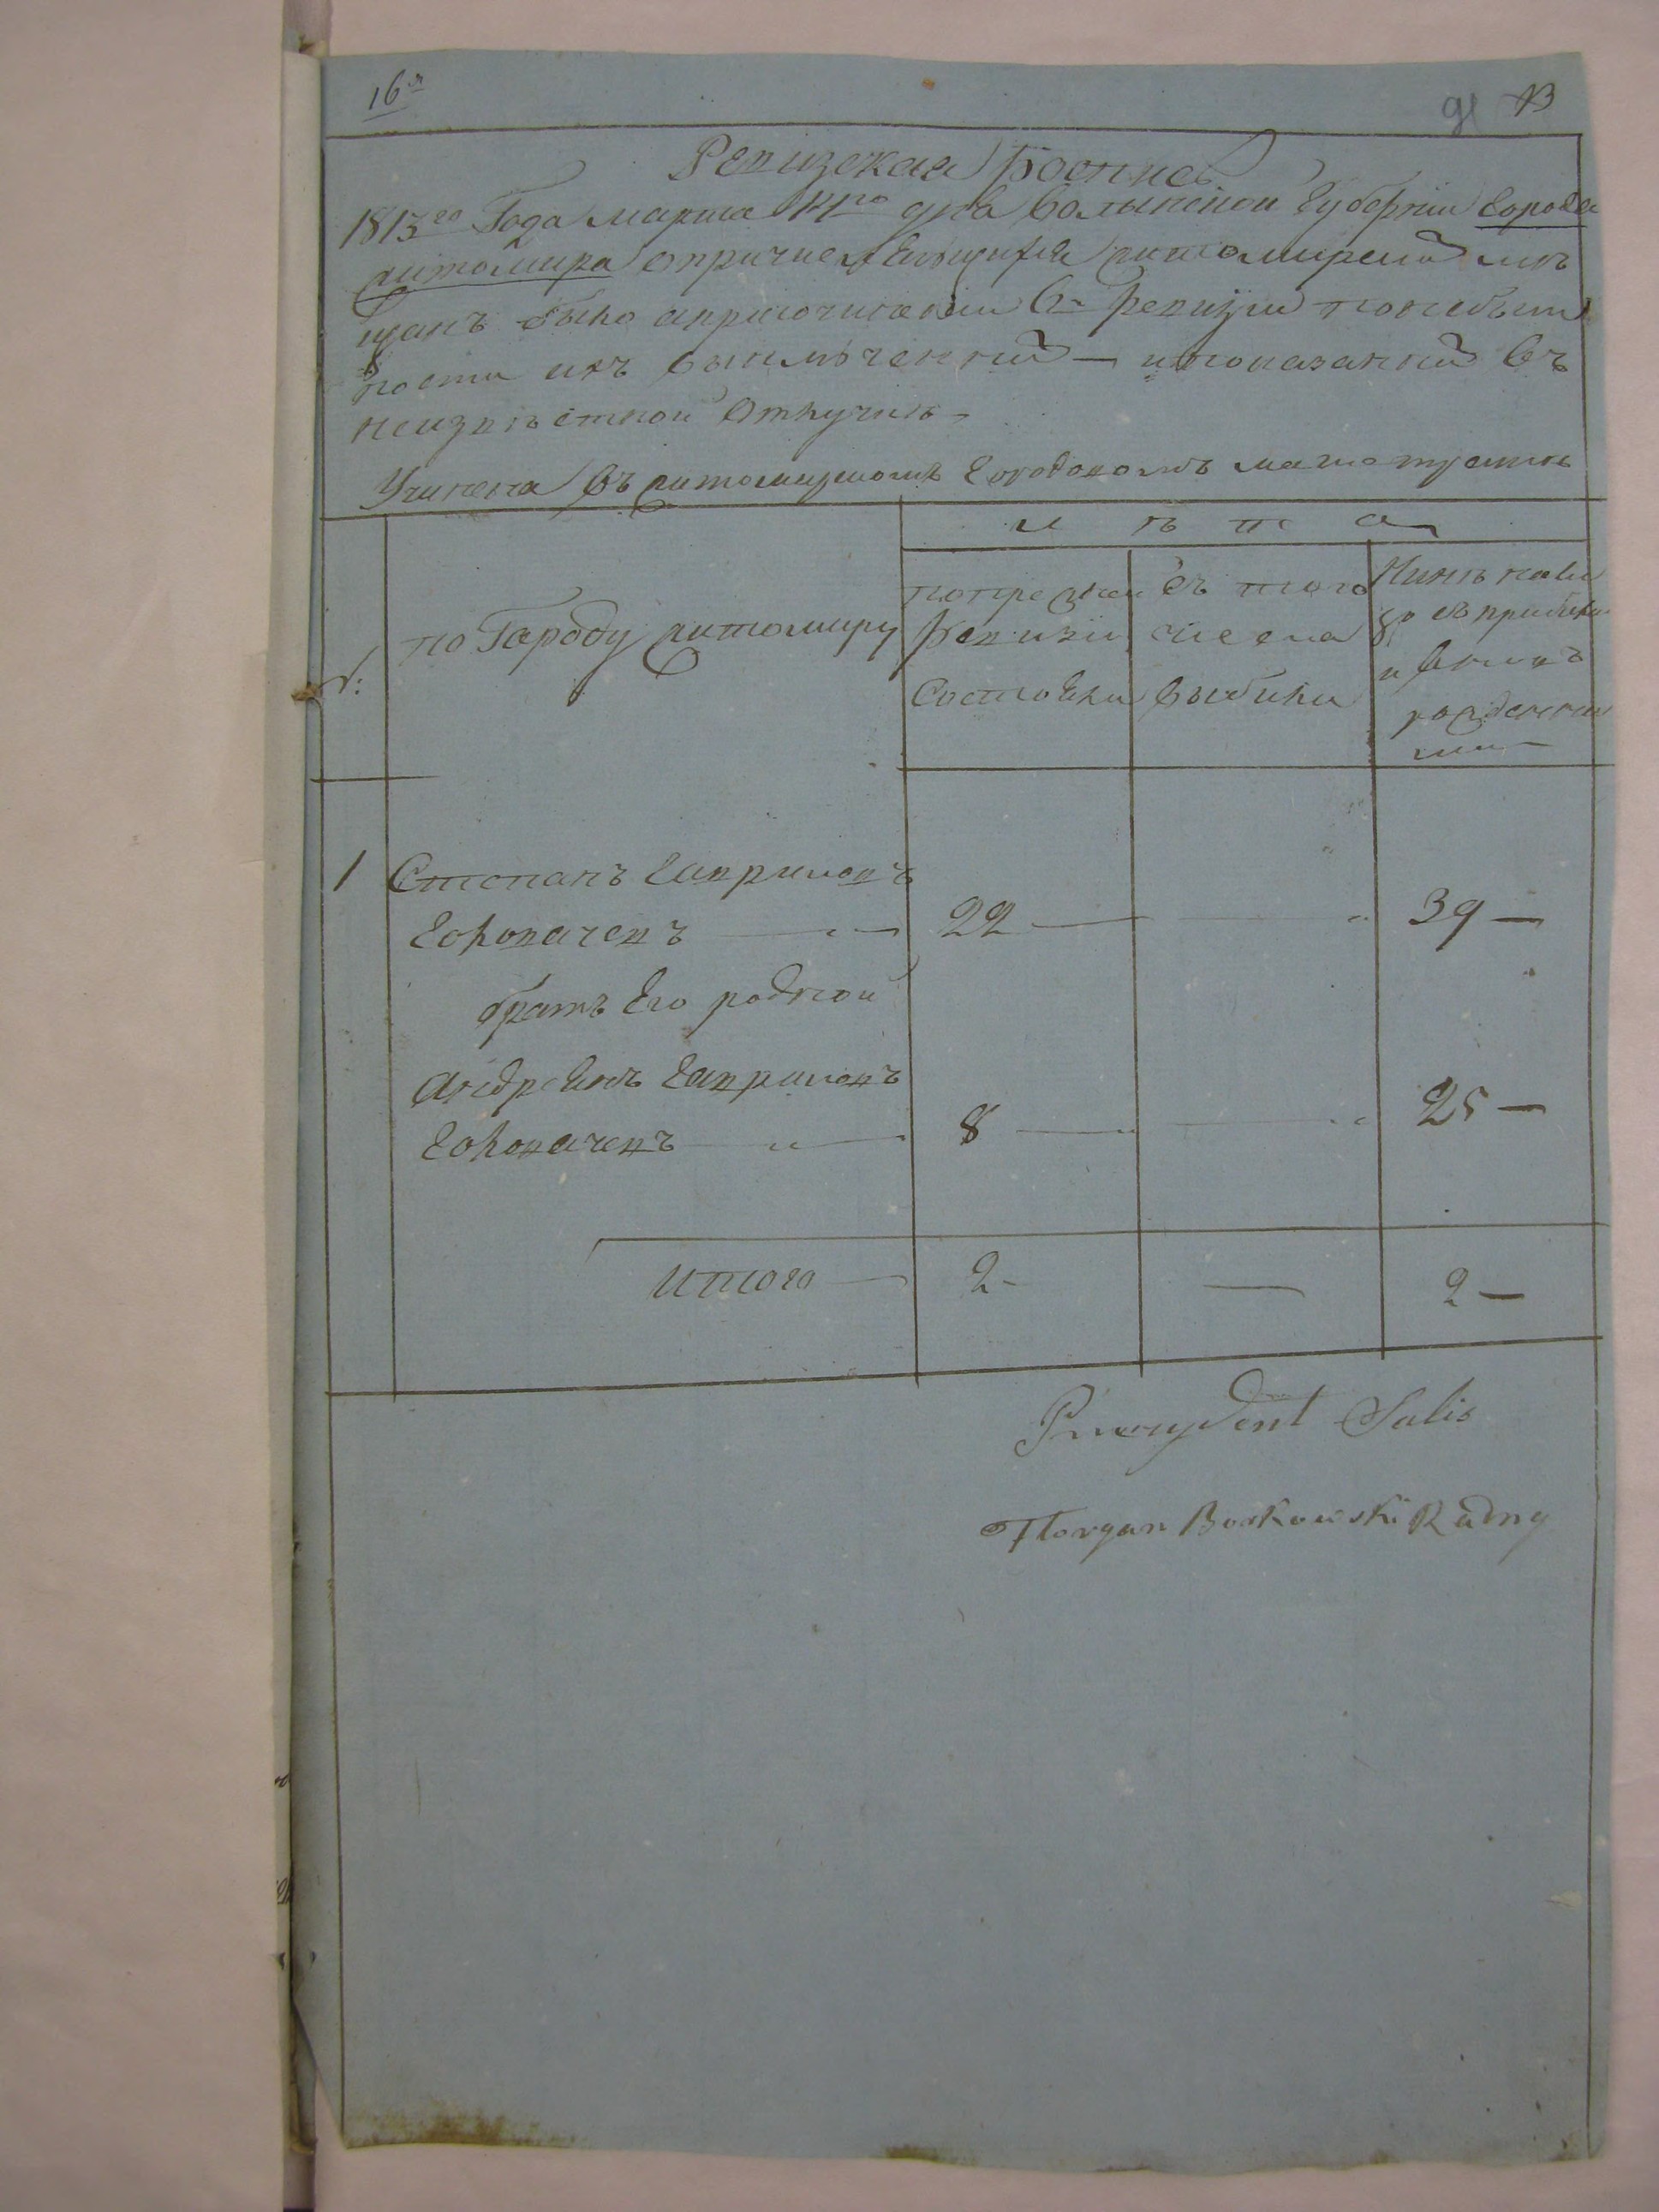 16я
91 13
Ревизская Роспись
1813го Года марта 14го дня Волынской Губернии Города
Житомира о причисляющихся житомирских мѣ
щанъ было а приточислении въ ревизии по небыт
ности ихъ выключенний — и показанний въ
неизвѣстной отлучкѣ —
Учинена въ житомирскомъ Городовомъ магистратѣ
лѣта
№:
по Городу житомиру
по прежней
Ревизии
Состояли
съ того
числа
выбыли
Нинѣ нали
цо съ прибыли
и вновь
рожденни
ми —
1 Степанъ Гавриловъ
Головачевъ — 22 — — 39 —
братъ Его родной
Андреянъ Гавриловъ
Головачевъ — 8 — — 25 —
итого — 2 - — 2 —
Prezydent Salis
Floryan Borkowski Radny